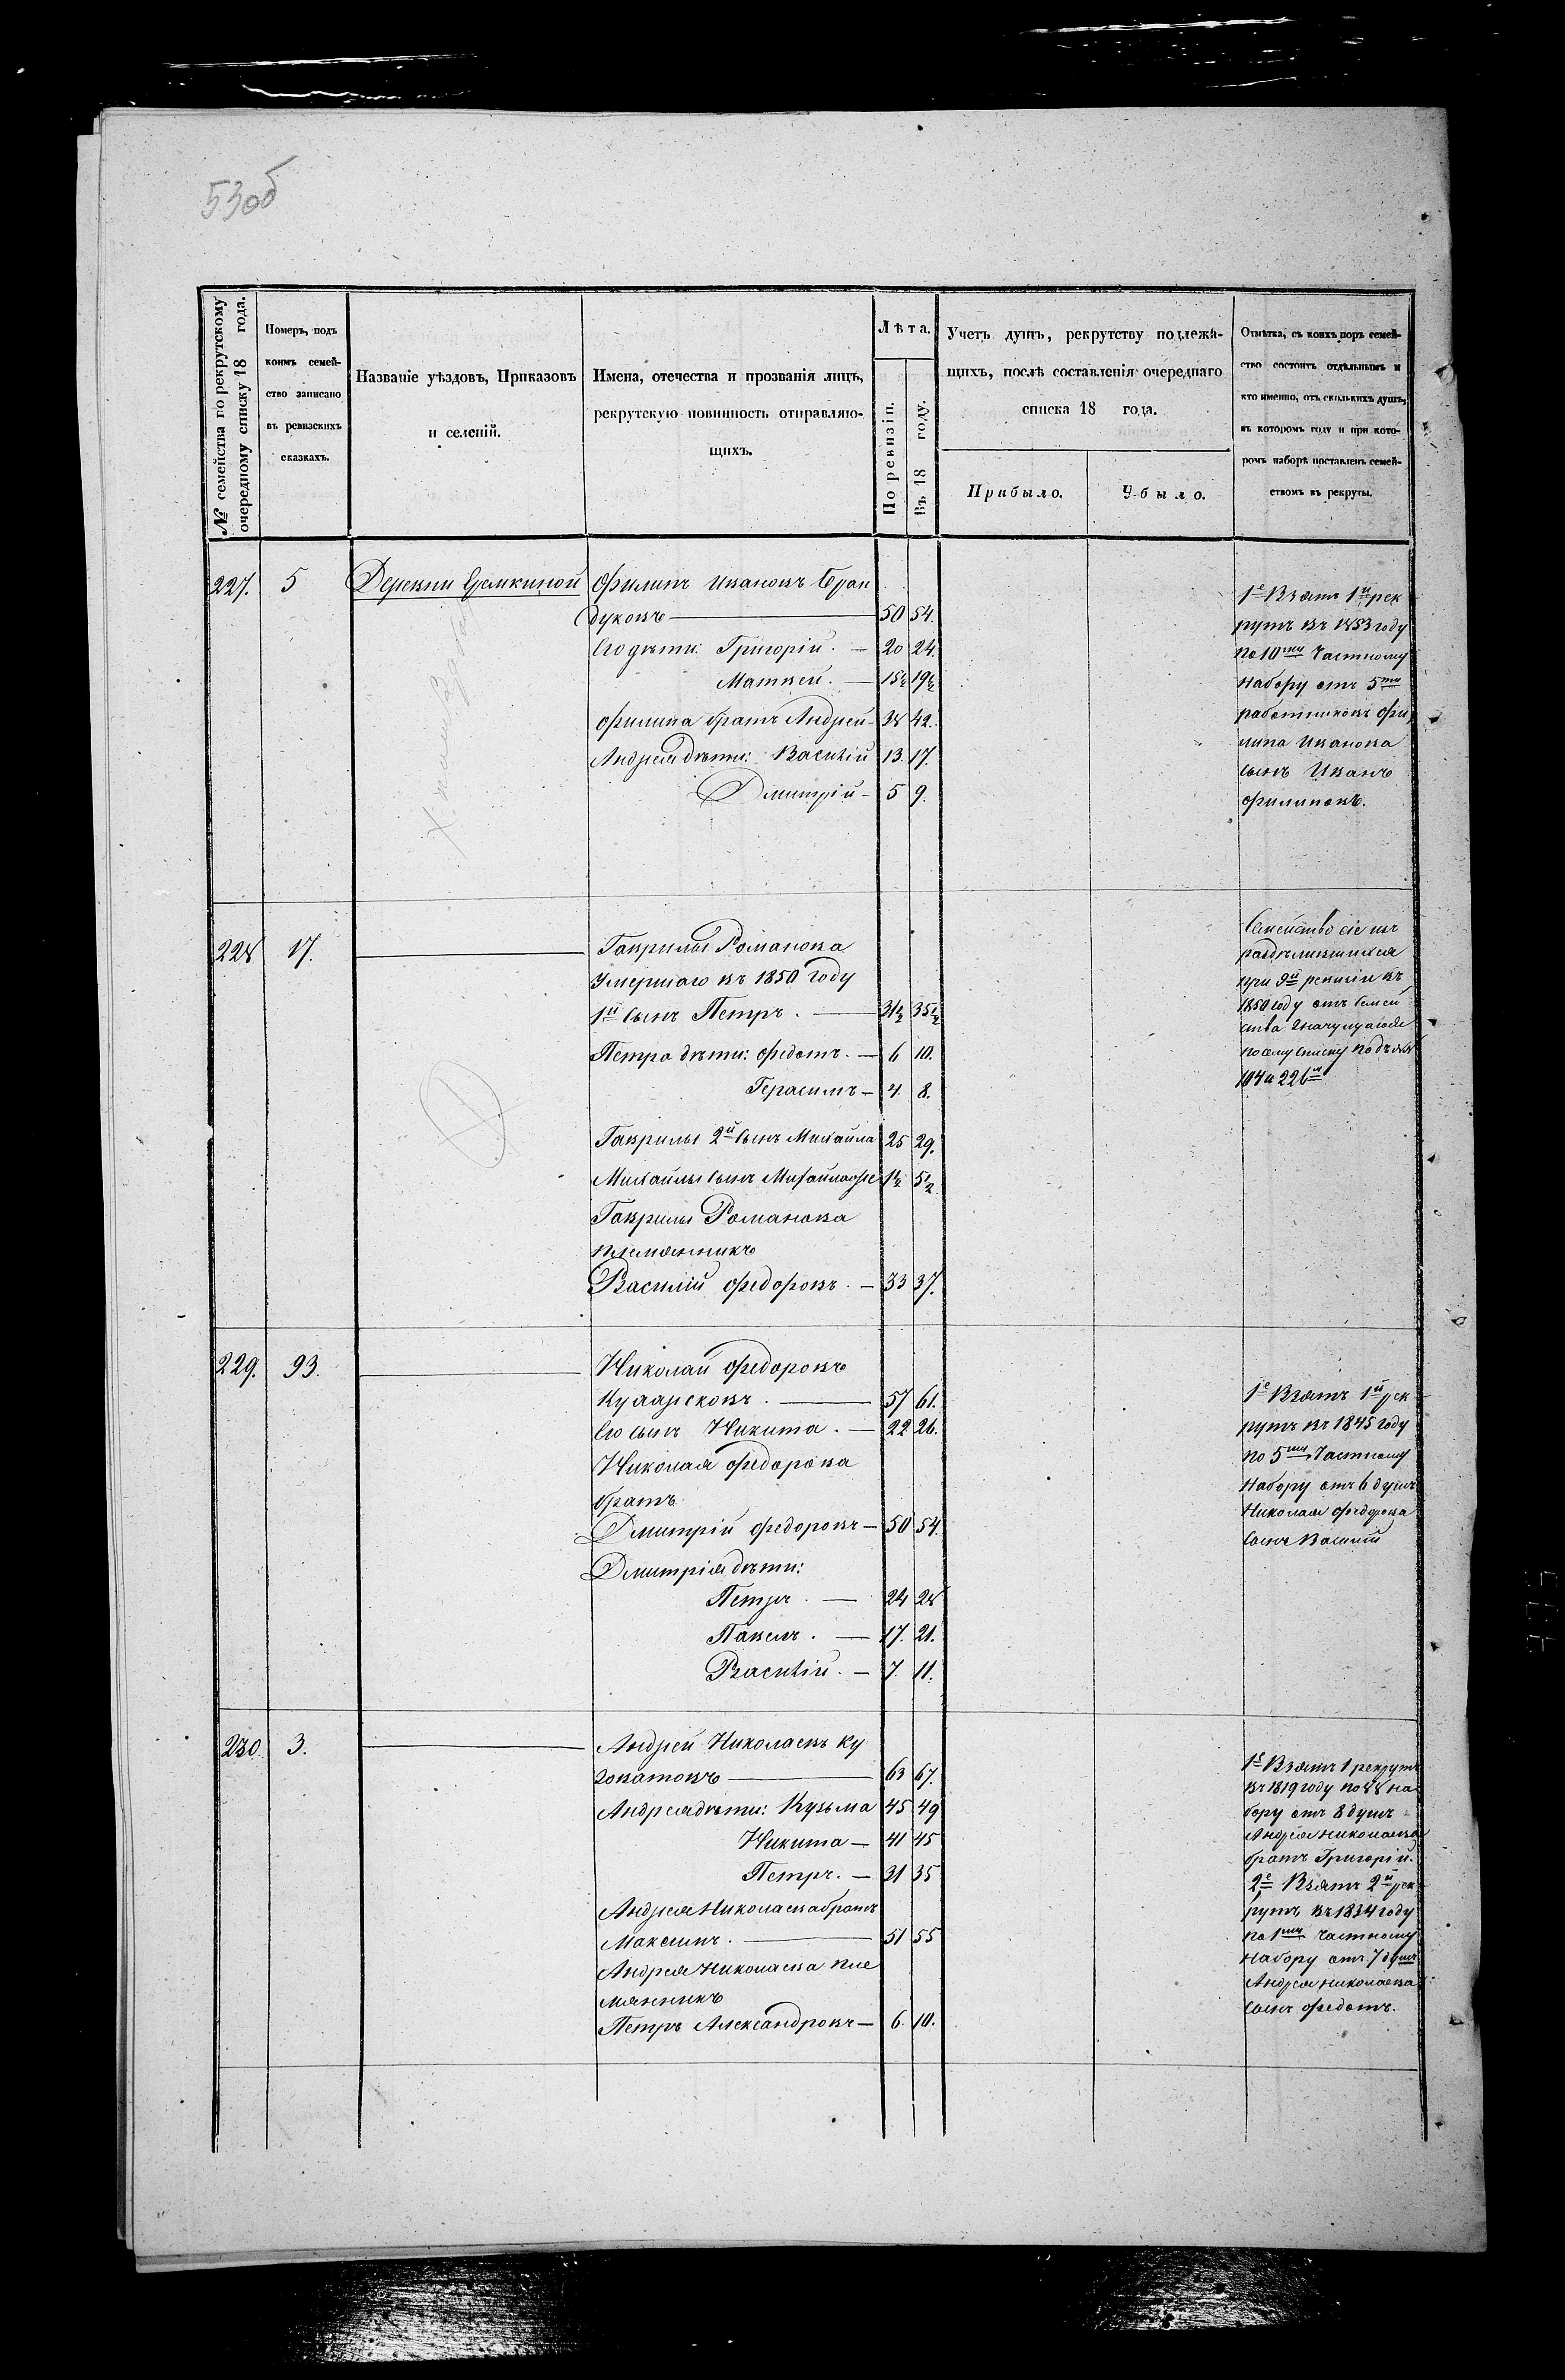 53об
№ семейства по рекрутскому очередному списку 18 года.
Номеръ, подъ
коимъ семей-
ство записано
въ ревизскихъ
сказкахъ.
Названіе уѣздовъ, Приказовъ
и селеній.
Имена, отечества и прозванія лицъ,
рекрутскую повинность отправляю-
щихъ.
Лѣта.
По ревизіи.
Въ 18 году.
Учетъ душъ, рекрутству подлежа-
щихъ, послѣ составленія очереднаго
списка 18 года.
Прибыло.
Убыло.
Отмѣтка, съ коихъ поръ семей-
ство состоитъ отдѣльнымъ и
кто именно, отъ сколькихъ душъ,
въ которомъ году и при кото-
ромъ наборѣ поставленъ семей-
ствомъ въ рекруты.
227. 5 Деревни Филипъ Ивановъ
дуковъ — 50 54.
Его дѣти: Григорій. — 20 24.
Матвей. — 15½ 19½
Филипа братъ Андрей — 38 42.
Андрея дѣти: Василій 13. 17.
Дмитрій — 5 9.
1е Взятъ 1й рек
рутъ въ 1853 году
по 10му Частному
набору отъ 5ти
работниковъ Фи
липа Иванова
сынъ Иванъ
Филиповъ.
228 17. — Гаврилы Романова
Умершаго въ 1850 году
1й Сынъ Петръ. — 31½ 35½
Петра дѣти: Федотъ. — 6 10.
Герасимъ — 4. 8.
Гаврилы 2й Сынъ Михайла 25 29.
Михайлы Сынъ Михайла же 1½ 5½
Гаврилы Романова
племянникъ
Василій Федоровъ. — 33 37.
Семейство сіе изъ
раздѣлившихся
при 9й ревизіи въ
1850 году отъ Семей
ства Значущагося
по сему Списку подъ №№
104 и 226м
229. 93. — Николай Федоровъ
— 57 61.
Его сынъ Никита. — 22 26.
Николая Федорова
братъ
Дмитрій Федоровъ — 50 54.
Дмитрія дѣти:
Петръ. — 24 28
Павелъ. — 17. 21.
Василій. — 7. 11.
1е Взятъ 1й рек
рутъ въ 1845 году
по 5му Частному
Набору отъ 6 душъ
Николая Федорова
Сынъ Василій
230. 3. — Андрей Николаевъ Ку
— 63 67.
Андрея дѣти: Кузьма 45 49
Никита — 41 45
Петръ. — 31 35
Андрея Николаева братъ
Максимъ. — 51 55
Андрея Николаева пле
мянникъ
Петръ Александровъ — 6. 10.
1е Взятъ 1 рекрутъ
въ 1819 году по 88 на
бору отъ 8 душъ
Андрея Николаева
братъ Григорій.
2е Взятъ 2й рек
рутъ въ 1834 году
по 1му Частному
Набору отъ 7 душъ
Андрея Николаева
Сынъ Федотъ.